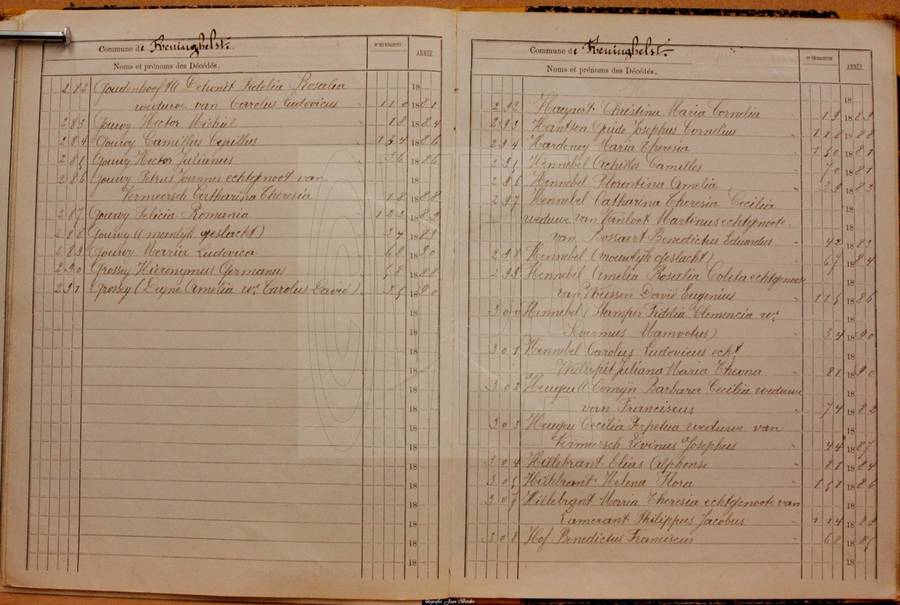 Commune de Reninghelst.
Nᵒˢ DU REGISTRE
ANNÉE.
Noms et prénoms des Décédés.
282 Goudenhooft Delienst Fidelia Rosalia 18
weduwe van Carolus Ludovicus 110 1881
283 Gouwy Hector Michiel 18 1884
284 Gouwy Camillus Cyrillus 1886
285 Gouwy Hector Julianus 56 1886
286 Gouwy Petrus Joannes echtgenoot van 18
Vermeersch Catharina Theresia 18 1888
287 Gouwy Felicia Romania 123 1889
288 Gouwy (manlijk geslacht) 37 1889
289 Gouwy Maria Ludovica 68 1890
290 Grossey Hieronymus Germanus 18 1888
291 Grossey (Duyne Amelia wᵉ Carolus David) 35 1890
Commune de Reninghelst.
Nᵒˢ DU REGISTRE
ANNÉE.
Noms et prénoms des Décédés.
292 Haynart Christina Maria Cornelia
293 Kantsen Guido Josephus Cornelius 1888
294 Hardeney Maria Theresia 1881
295 Hennebel Achilles Camilles 1881
296 Hennebel Florentina Amelia 1883
297 Hennebel Catharina Theresia Cecilia
weduwe van Vanlook Martinus echtgenoote
van Bossaert Benedictus Eduardus 42 1883
298 Hennebel (vrouwlijk geslacht) 67 1884
299 Hennebel Amelia Rosalia Coleta echtgenoote
van Thiessen David Eugenius 115 1886
300 Hennebel (Stamper Fidelia Clemencia wᵉ
Mamvotus) 54 1890
301 Hennebel Carolus Ludovicus echᵗ
Wullepit Juliana Maria Theona 81 1890
302 Heugue (Comijn Barbara Cecilia weduwe
van Franciscus 74 1882
303 Heugue Cecilia Perpetua weduwe van
Vermeersch Livinus Josephus 44 1887
304 Hillebrant Elias Alphonse 81 1884
305 Hillebrant Helena Flora 1886
307 Hillebrant Maria Theresia echtgenoote van
Lamerant Philippus Jacobus 114 1889
308 Hof Benedictus Franciscus 68